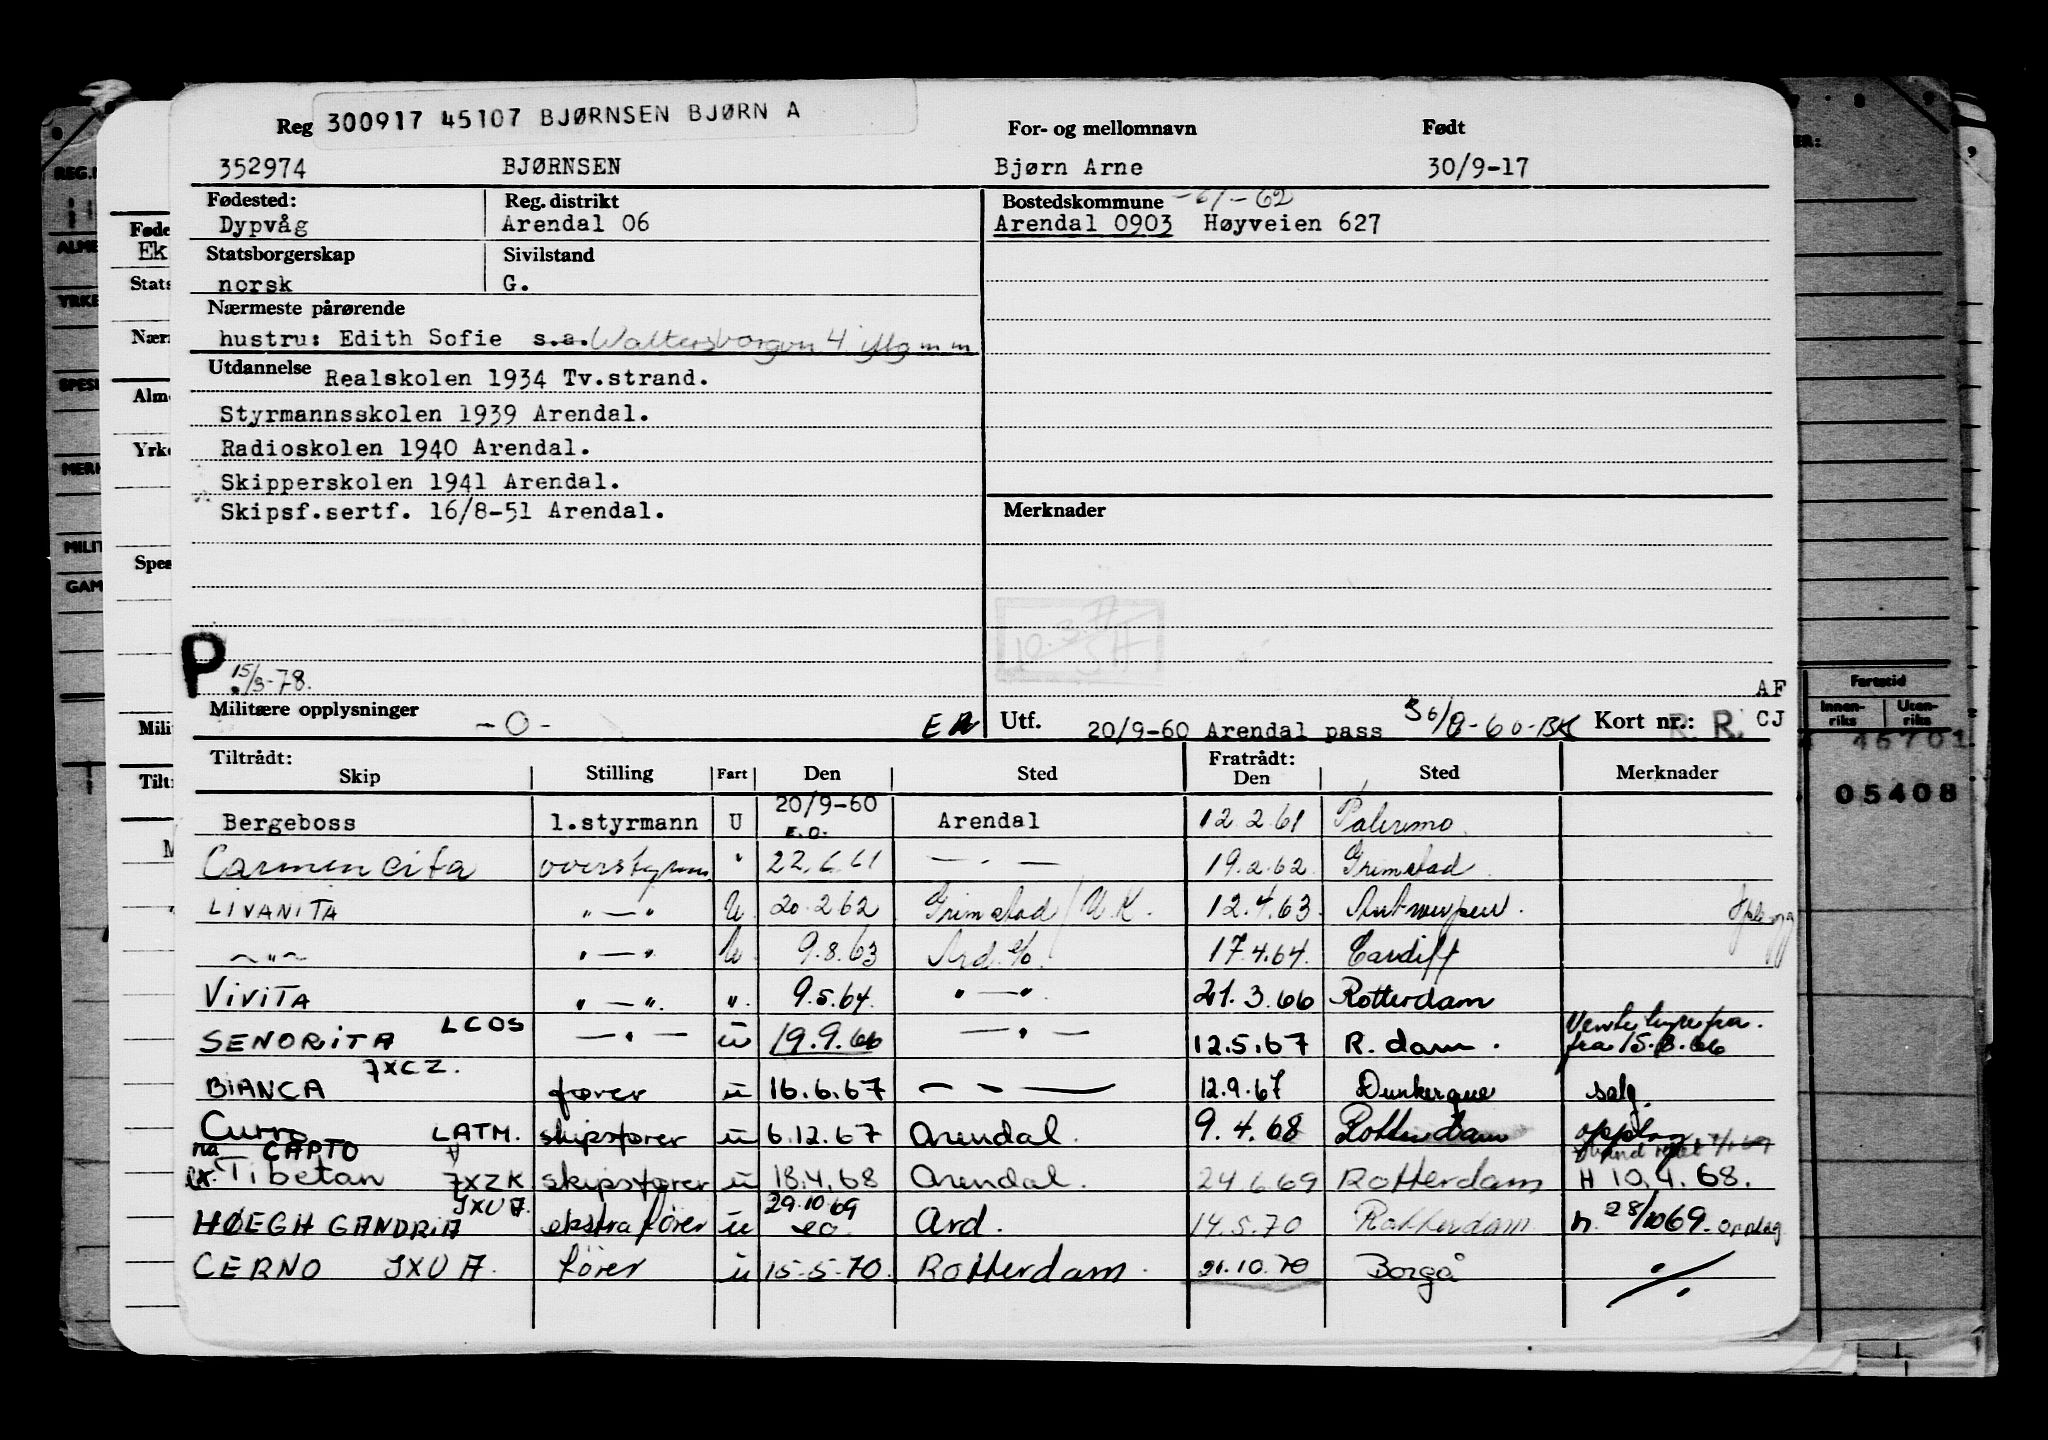 300917 45107 BJØRNSEN BJØRN A
Reg For- og mellomnavn Født
352974 BJØRNSEN Bjørn Arne 30/9-17
Fødested: Reg. distrikt Bostedskommune -6/-62
Dypvåg Arendal 06 Arendal 0903 Høyveien 627
Statsborgerskap Sivilstand
norsk G.
Nærmeste pårørende
hustru: Edith Sofie s.a.
Utdannelse Realskolen 1934 Tv.strand.
Styrmannsskolen 1939 Arendal.
Radioskolen 1940 Arendal.
Skipperskolen 1941 Arendal.
Skipsf.sertf. 16/8-51 Arendal.
Merknader
P 15/3-78.
AF
Militære opplysninger -0- Utf. 20/9-60 Arendal pass Kort nr.: R. R. CJ
Tiltrådt: Fratrådt:
Skip Stilling Fart Den Sted Den Sted Merknader
Bergeboss 1.styrmann U 20/9-60 E.O. Arendal 12.2.61 Palermo
Carmencita overstyrm. " 22.6.61 — " — 19.2.62 Grimstad
LIVANITA " — " U 20.2.62 Grimstad / U.K. 12.4.63. Antwerpen.
— " — " — " U 9.8.63 17.4.64. Cardiff
VIVITA " — " ". 9.5.64. " — ". 21.3.66 Rotterdam
SENORITA LCOS — " — u 19.9.66 — " — 12.5.67 R.dam. fra 15.8.66
BIANCA JXCZ. fører u 16.6.67 — " — 12.9.67 Dunkerque salg.
Curro LATM. skipsfører u 6.12.67 Arendal. 9.4.68 Rotterdam opplag
nå CAPTO
ex. Tibetan JXZK skipsfører u 18.4.68 Arendal. 24.6.69 Rotterdam H 10.4.68.
HØEGH GANDRIA JXUA. ekstra fører u 29.10.69 eo. Ard. 14.5.70 Rotterdam h. 28/10 69. opplag
CERNO JXUA. fører u 15-5-70. Rotterdam. 21.10.70 Borgå
REG.N
ALME
YRKE
SPESI
MERK
MILIT
GAM
Føde
Ek
Stats
Nærm
Alm
Yrke
Spes
Mili
Tilt
Fartstid
Innen-
riks
Uten-
riks
46701
05408